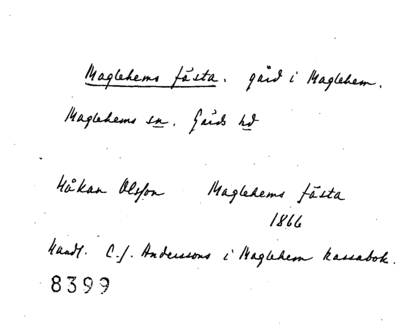 Maglehems fästa. gård i Maglehem.
Maglehems sn. Gärds hd
Håkan Olsson Maglehems fästa
1866
Handl. C.J. Anderssons i Maglehem kassabok.
8399